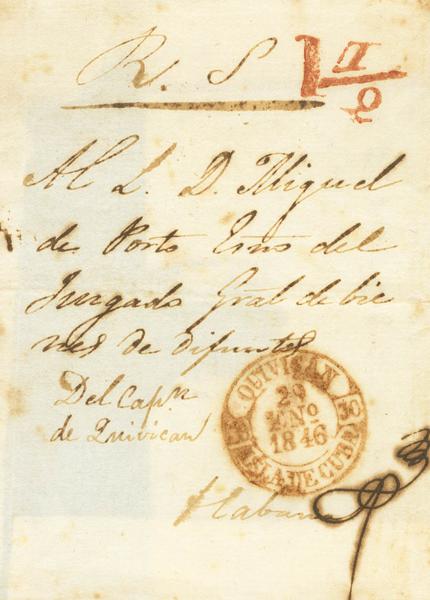 R. S
1 1/2
Al L. D. Miguel
de Porto Esno del
Juzgado Gral de bie
nes de difuntos
Del Capn
de Quivican
QUIVICAN
29
ENO
1846
ISLA DE CUBA
Habana